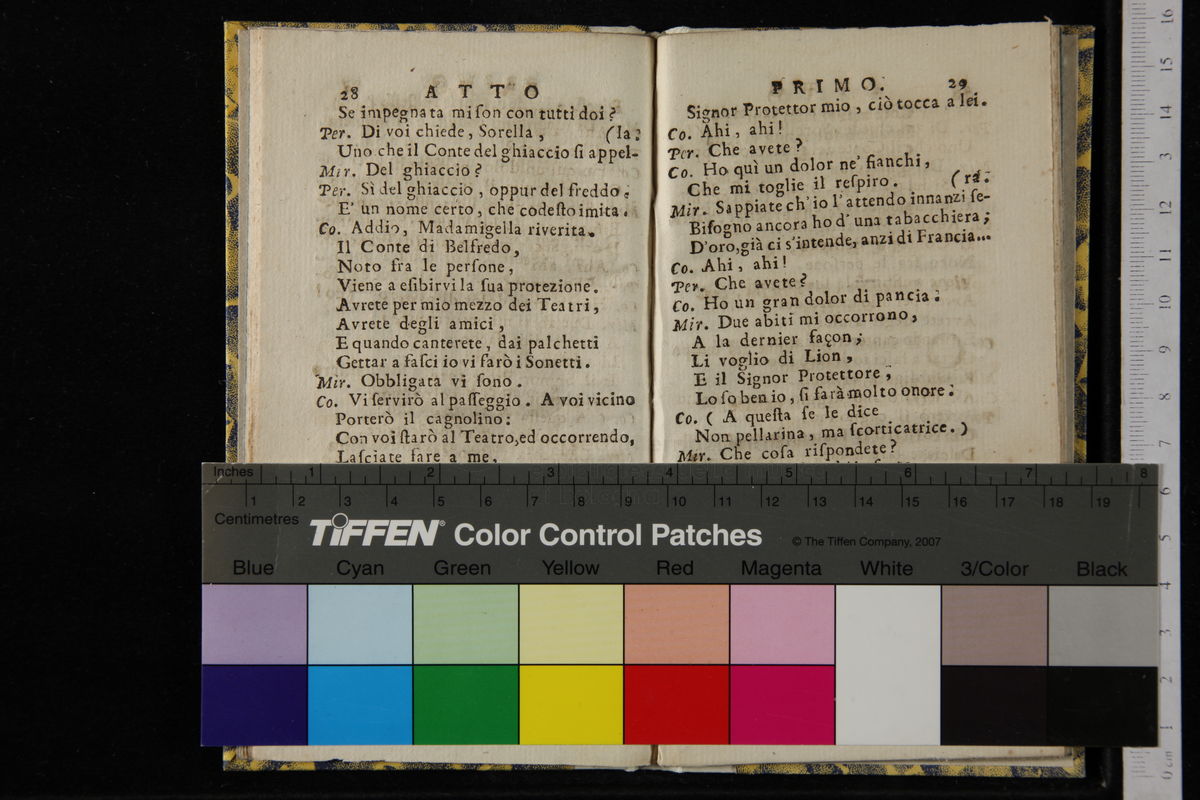 28 ATTO
Se impegnata mi ſon con tutti doi?
Per. Di voi chiede, Sorella, (la:
Uno che il Conte del ghiaccio ſi appel-
Mir. Del ghiaccio?
Per. Sì del ghiaccio, oppur del freddo.
E' un nome certo, che codeſto imita.
Co. Addio, Madamigella riverita.
Il Conte di Belfredo,
Noto fra le perſone,
Viene a eſibirvi la ſua protezione.
Avrete per mio mezzo dei Teatri,
Avrete degli amici,
E quando canterete, dai palchetti
Gettar a faſci io vi farò i Sonetti.
Mir. Obbligata vi ſono.
Co. Vi ſervirò al paſſeggio. A voi vicino
Porterò il cagnolino:
Con voi ſtarò al Teatro, ed occorrendo,
Laſciate fare a me,
PRIMO. 29
Signor Protettor mio, ciò tocca a lei.
Co. Ahi, ahi!
Per. Che avete?
Co. Ho quì un dolor ne' fianchi,
Che mi toglie il reſpiro. (rà:
Mir. Sappiate ch' io l' attendo innanzi ſe-
Biſogno ancora ho d' una tabacchiera;
D'oro, già ci s'intende, anzi di Francia...
Co. Ahi, ahi!
Per. Che avete?
Co. Ho un gran dolor di pancia:
Mir. Due abiti mi occorrono,
A la dernier façon;
Li voglio di Lion,
E il Signor Protettore,
Lo ſo ben io, ſi farà molto onore:
Co. ( A queſta ſe le dice
Non pellarina, ma ſcorticatrice. )
Mir. Che coſa riſpondete?
Inches 1 2 3 4 5 6 7 8
1 2 3 4 5 6 7 8 9 10 11 12 13 14 15 16 17 18 19
Centimetres
TIFFEN® Color Control Patches © The Tiffen Company, 2007
Blue Cyan Green Yellow Red Magenta White 3/Color Black
16
15
14
13
12
11
10
9
8
7
6
5
4
3
2
1
0 cm